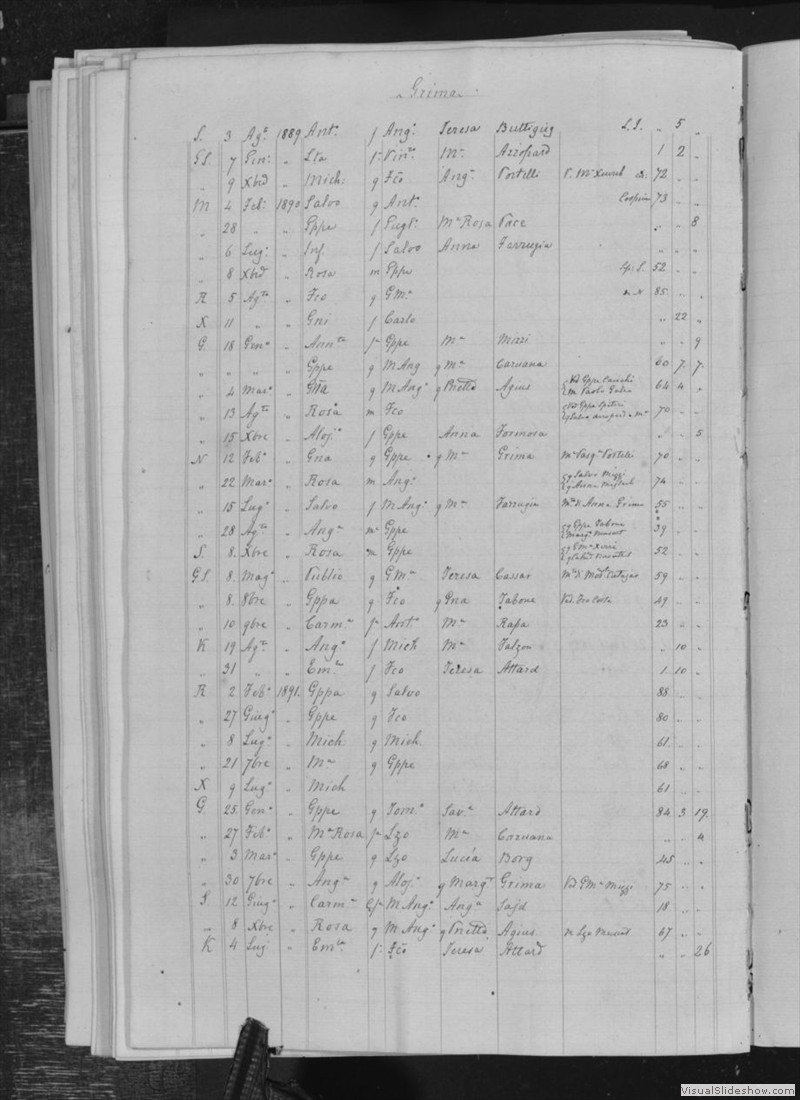 Grima
S. 3 Ag.º 1889 Ant.º f Ang.º Teresa Buttigieg L.S. „ 5 „
GS. 7 Gen.º „ f. Vin.º M.ª Azzopard 1 2 „
„ 9 Xbre „ Mich: g Fco Ang.ª Portelli 72 „ „
M 4 Feb.º 1890 Salvo g Ant.º 73 „ „
„ 28 „ „ Gppe f M.ª Rosa Pace „ „ 8
„ 6 Lug.º „ Inf. f Salvo Anna Farrugia „ „ „
„ 8 Xbre „ Rosa m Gppe 52 „ „
R 5 Ag.to „ Fco g GM.ª 85 „ „
X 11 „ „ Gni f Carlo „ 22 „
G. 18 Gen.º „ Ann.ta f Gppe M.ª Mizzi „ „ 9
„ „ „ „ Gppe g M Ang g M.ª Caruana 60 7 7
„ 4 Mar.º „ g M Ang.º g Agius 64 4 „
„ 13 Ag.to „ Rosa m Fco 70 „ „
„ 15 Xbre „ Aloj.ª f Gppe Anna Formosa „ „ 5
N 12 Feb.º „ Gna g Gppe g M.ª Grima Portelli 70 „ „
„ 22 Mar.º „ Rosa m Ang.º g Salvo Mizzi 74 „ „
„ 15 Lug.º „ Salvo f M Ang.º g M.ª Farrugia M.to d. Anna Grima 55 „ „
„ 28 Ag.to „ Ang.ª m Gppe g Gppe Tabone 39 „ „
S. 8. Xbre „ Rosa m Gppe 52 „ „
G.S. 8. Mag.º „ Publio g GM.ª Teresa Cassar 59 „ „
„ 8. 8bre „ Gppa g Fco g Gna Tabone 49 „ „
„ 10 9bre „ Carm.ª f Ant.º M.ª Rapa 23 „ „
K 19 Ag.to „ Ang.º f Mich M.ª Falzon „ 10 „
„ 31 „ „ Em.la f Fco Teresa Attard 1 10 „
R 2 Feb.º 1891. Gppa g Salvo 88 „ „
„ 27 Giug.º „ Gppe g Fco 80 „ „
„ 8 Lug.º „ Mich. g Mich. 61 „ „
„ 21 7bre „ M.ª g Gppe 68 „ „
X 9 Lug.º „ Mich 61 „ „
G. 25. Gen.º „ Gppe g Tom.º Sav.ª Attard 84 3 19.
„ 27 Feb.º „ M.ª Rosa f Lzo M.ª Caruana „ „ 4
„ 3 Mar.º „ Gppe g Lzo Lucia Borg 45 „ „
„ 30 7bre „ Ang.ª g Aloj.º g Marg.ta Grima Vd. GM.ª Mizzi 75 „ „
S 12 Giug.º „ Carm.ª M Ang.º Ang.ª Sajd 18 „ „
„ 8 Xbre „ Rosa g M Ang.º g Agius m Lzo Muscat 67 „ „
K 4 Lug. „ Em.la f. Fco Teresa Attard „ „ 26
VisualSlideshow.com